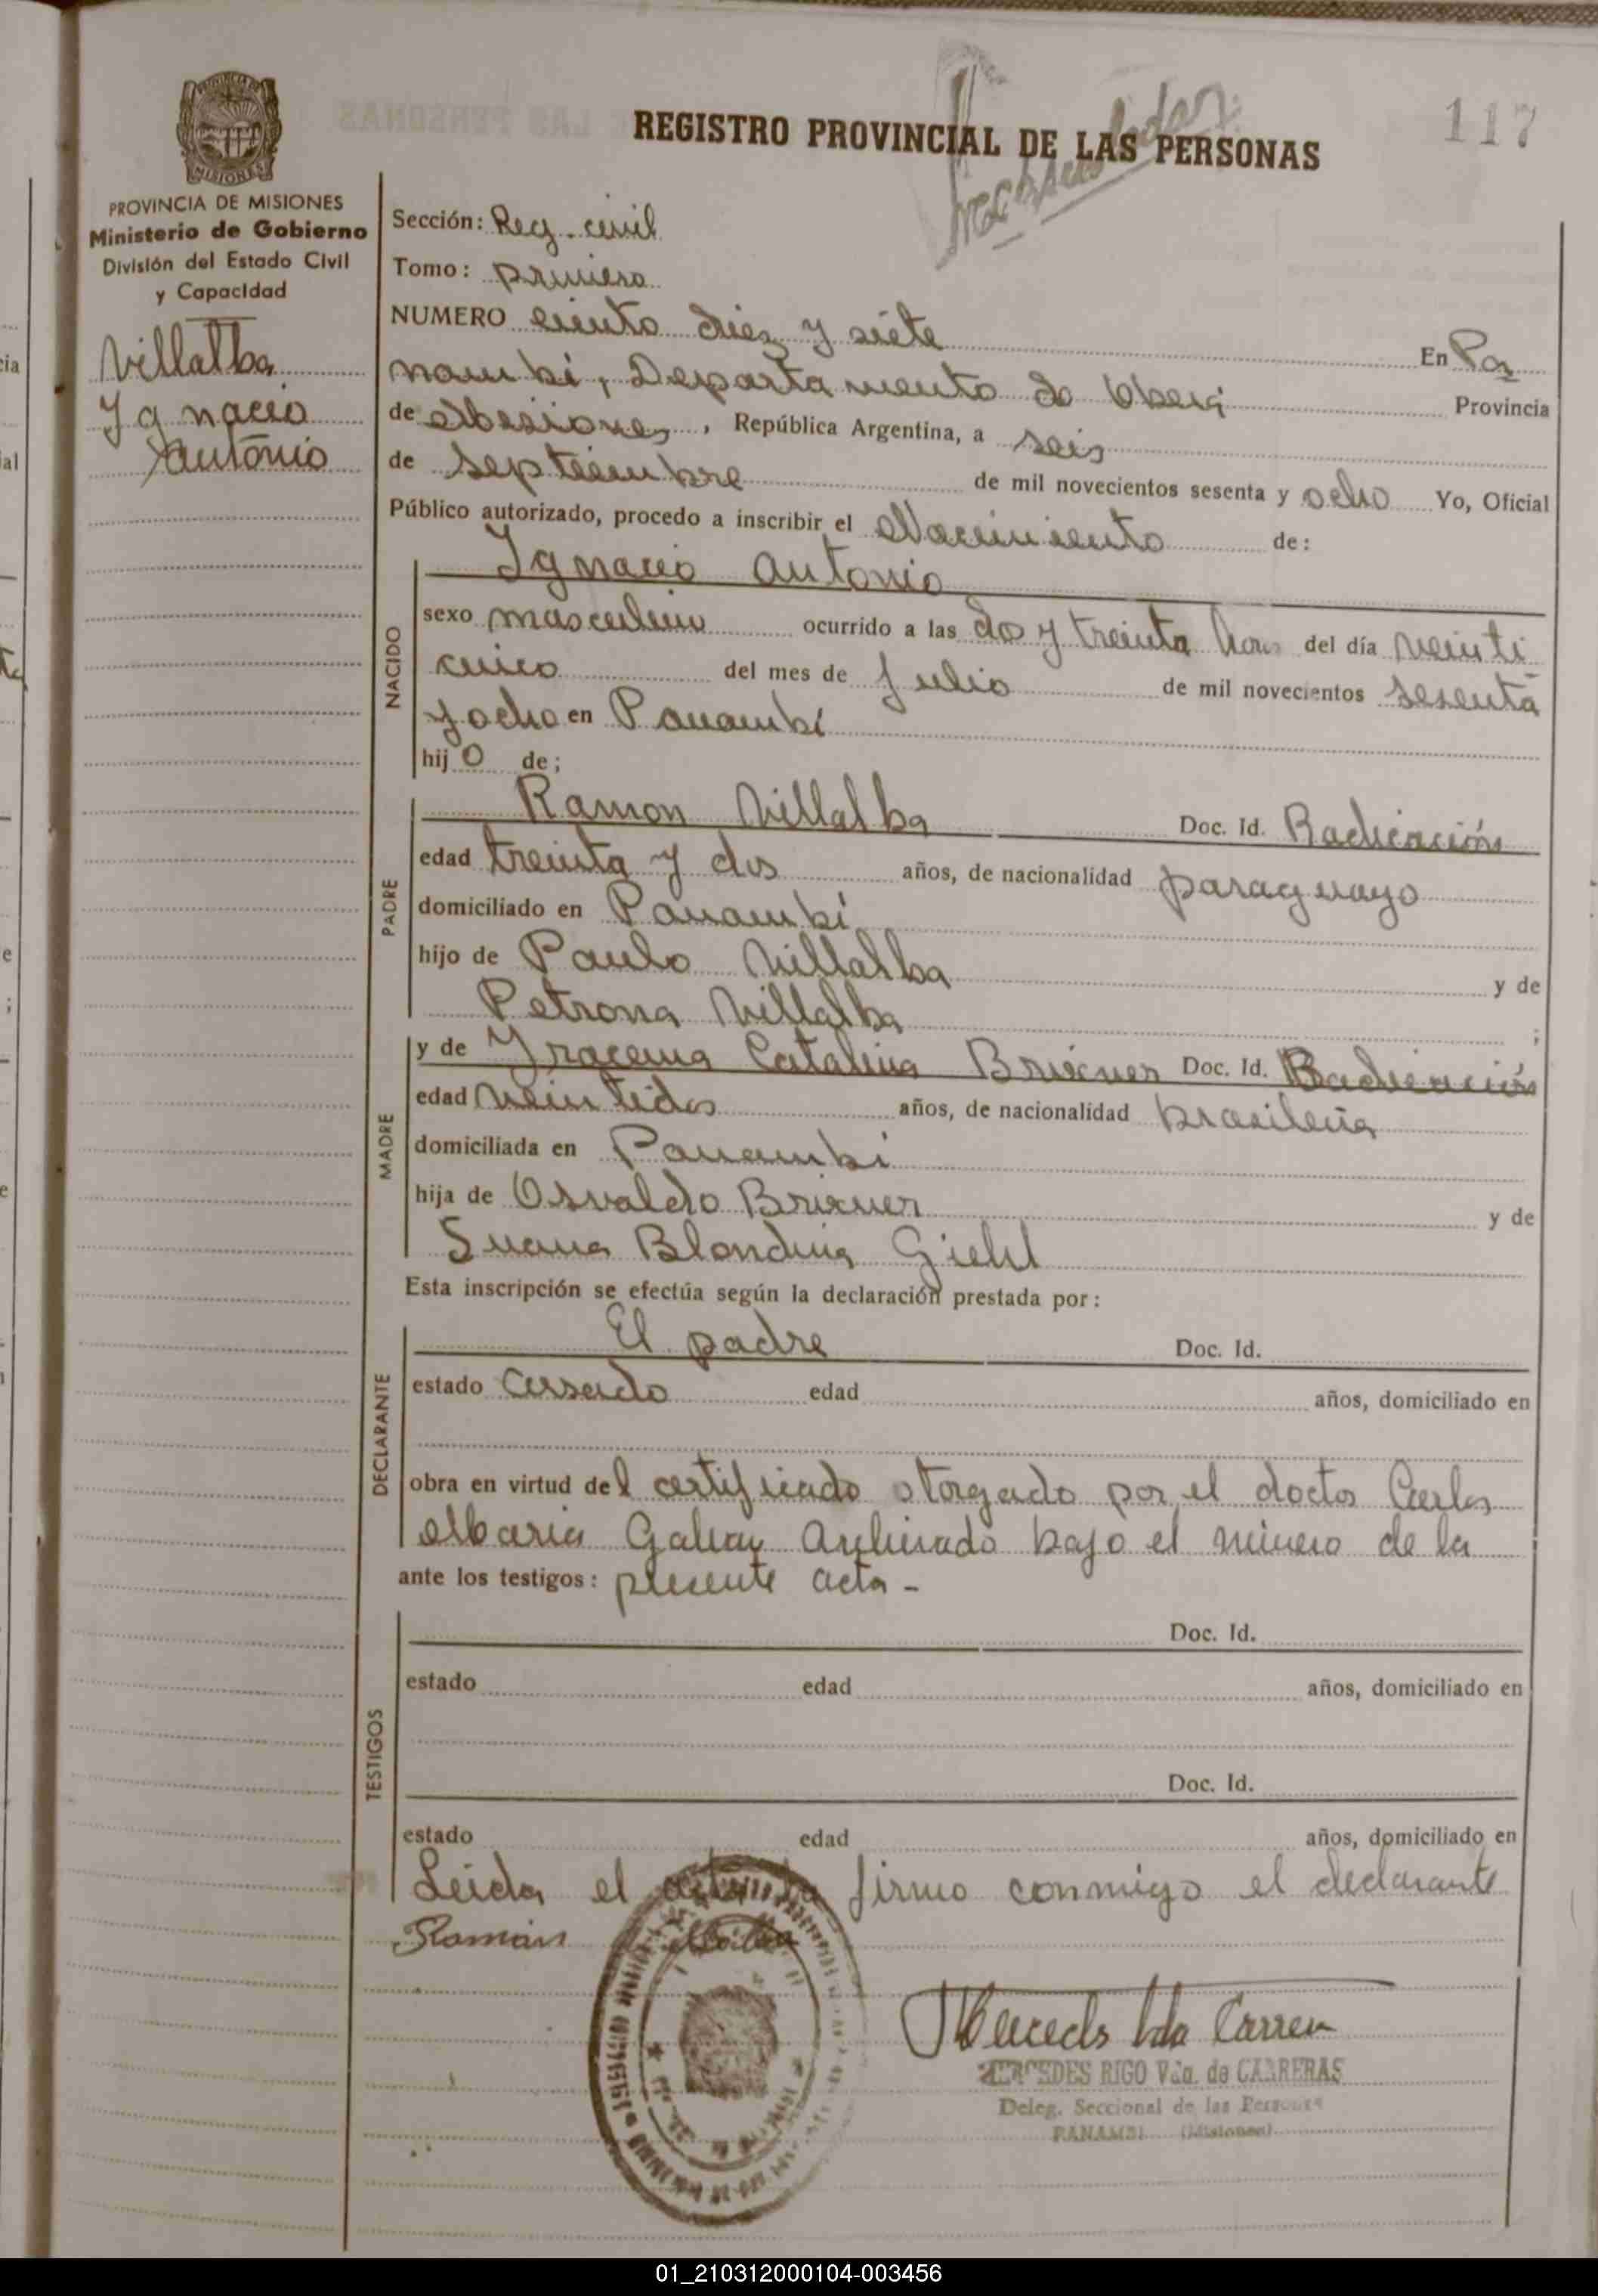 117
REGISTRO PROVINCIAL DE LAS PERSONAS
PROVINCIA DE MISIONES
Ministerio de Gobierno
División del Estado Civil
y Capacidad
Villalba
Ygnacio
Antonio
Sección: Reg. civil
Tomo: primero
NUMERO ciento diez y siete En Pa
nambi, Departamento de Oberá Provincia
de Misiones, República Argentina, a seis
de septiembre de mil novecientos sesenta y ocho Yo, Oficial
Público autorizado, procedo a inscribir el Nacimiento de:
NACIDO
Ygnacio Antonio
sexo masculino ocurrido a las dos y treinta horas del día veinti
cinco del mes de Julio de mil novecientos sesenta
y ocho en Panambí
hijo de;
PADRE
Ramon Villalba Doc. Id. Radicación
edad treinta y dos años, de nacionalidad paraguayo
domiciliado en Panambí
hijo de Paulo Villalba y de
Petrona Villalba ;
MADRE
y de Yracema Catalina Brixner Doc. Id. Radicación
edad veintidos años, de nacionalidad brasileña
domiciliada en Panambi
hija de Osvaldo Brixner y de
Suana Blondina Giehl
Esta inscripción se efectúa según la declaración prestada por:
DECLARANTE
El padre Doc. Id.
estado Casado edad años, domiciliado en
obra en virtud del certificado otorgado por el doctor Carlos
Maria Galvay Archivado bajo el número de la
ante los testigos: presente acta -
TESTIGOS
Doc. Id.
estado edad años, domiciliado en
Doc. Id.
estado edad años, domiciliado en
Leida el acta la firmo conmigo el declarante
Roman
Mercedes Vda Carrera
MERCEDES RIGO Vda. de CARRERAS
Deleg. Seccional de las Personas
PANAMBI (Misiones)
01_210312000104-003456